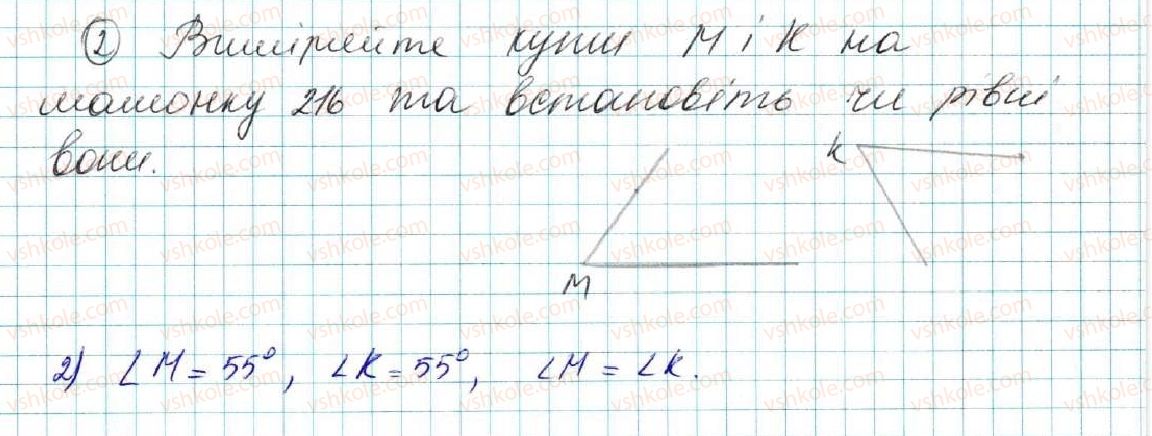 ② Виміряйте кути М і К на
малюнку 216 та встановіть чи рівні
вони.
К
М
2) ∠М = 55°, ∠К = 55°, ∠М = ∠К.
vshkole.com